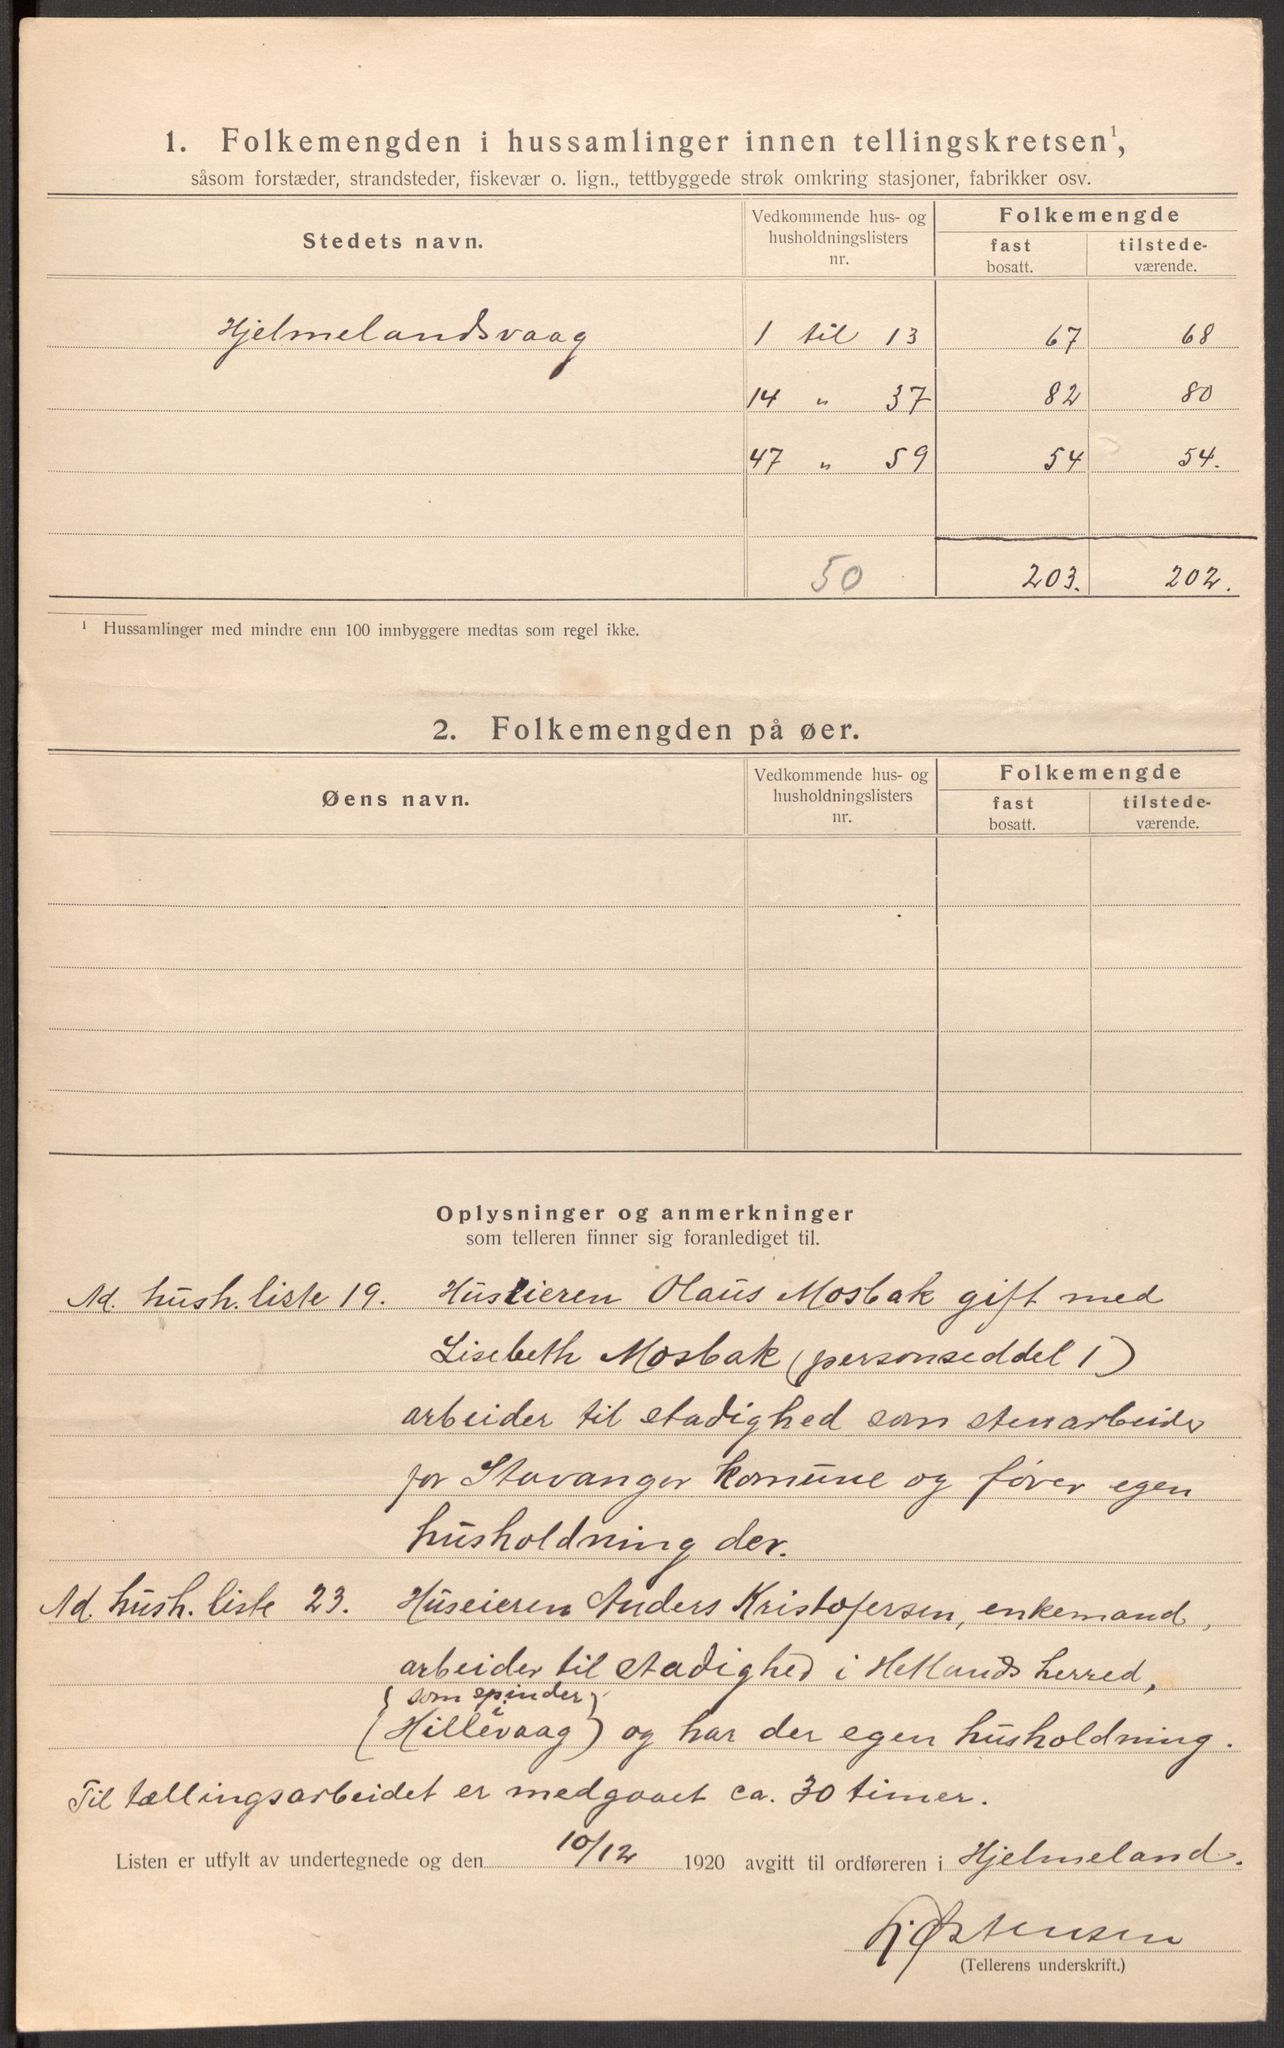 1. Folkemengden i hussamlinger innen tellingskretsen¹,
såsom forstæder, strandsteder, fiskevær o. lign., tettbyggede strøk omkring stasjoner, fabrikker osv.
Stedets navn. Vedkommende hus- og husholdningslisters nr. Folkemengde
fast bosatt. tilstede-værende.
Hjelmelandsvaag 1 til 13 67 68
14 " 37 82 80
47 " 59 54 54.
50 203. 202.
¹ Hussamlinger med mindre enn 100 innbyggere medtas som regel ikke.
2. Folkemengden på øer.
Øens navn. Vedkommende hus- og husholdningslisters nr. Folkemengde
fast bosatt. tilstede-værende.
Oplysninger og anmerkninger
som telleren finner sig foranlediget til.
Ad. hush. liste 19. Huseieren Olaus Mosbak gift med
Lisebeth Mosbak (personseddel 1)
arbeider til stadighed som stenarbeider
for Stavanger komune og fører egen
husholdning der.
Ad. hush. liste 23. Huseieren Anders Kristofersen, enkemand,
arbeider til stadighed i Hetlands herred,
(som spinder i
Hillevaag) og har der egen husholdning.
Til tællingsarbeidet er medgaaet ca. 30 timer.
Listen er utfylt av undertegnede og den 10/12 1920 avgitt til ordføreren i Hjelmeland.
Østensen
(Tellerens underskrift.)